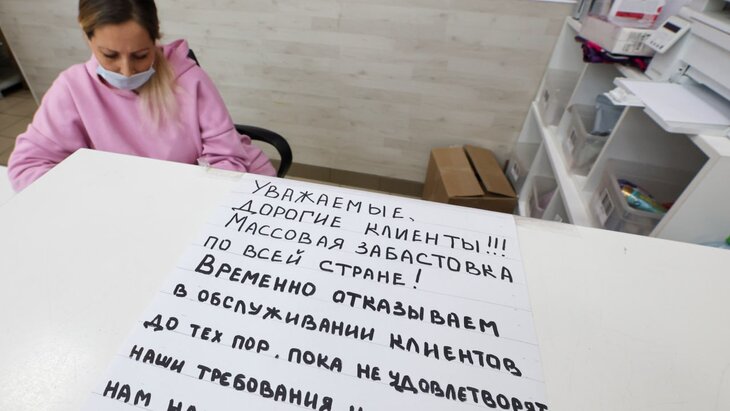 УВАЖАЕМЫЕ,
ДОРОГИЕ КЛИЕНТЫ!!!
МАССОВАЯ ЗАБАСТОВКА
ПО ВСЕЙ СТРАНЕ!
ВРЕМЕННО ОТКАЗЫВАЕМ
В ОБСЛУЖИВАНИИ КЛИЕНТОВ
ДО ТЕХ ПОР, ПОКА НЕ УДОВЛЕТВОРЯТ
НАШИ ТРЕБОВАНИЯ
НАМ